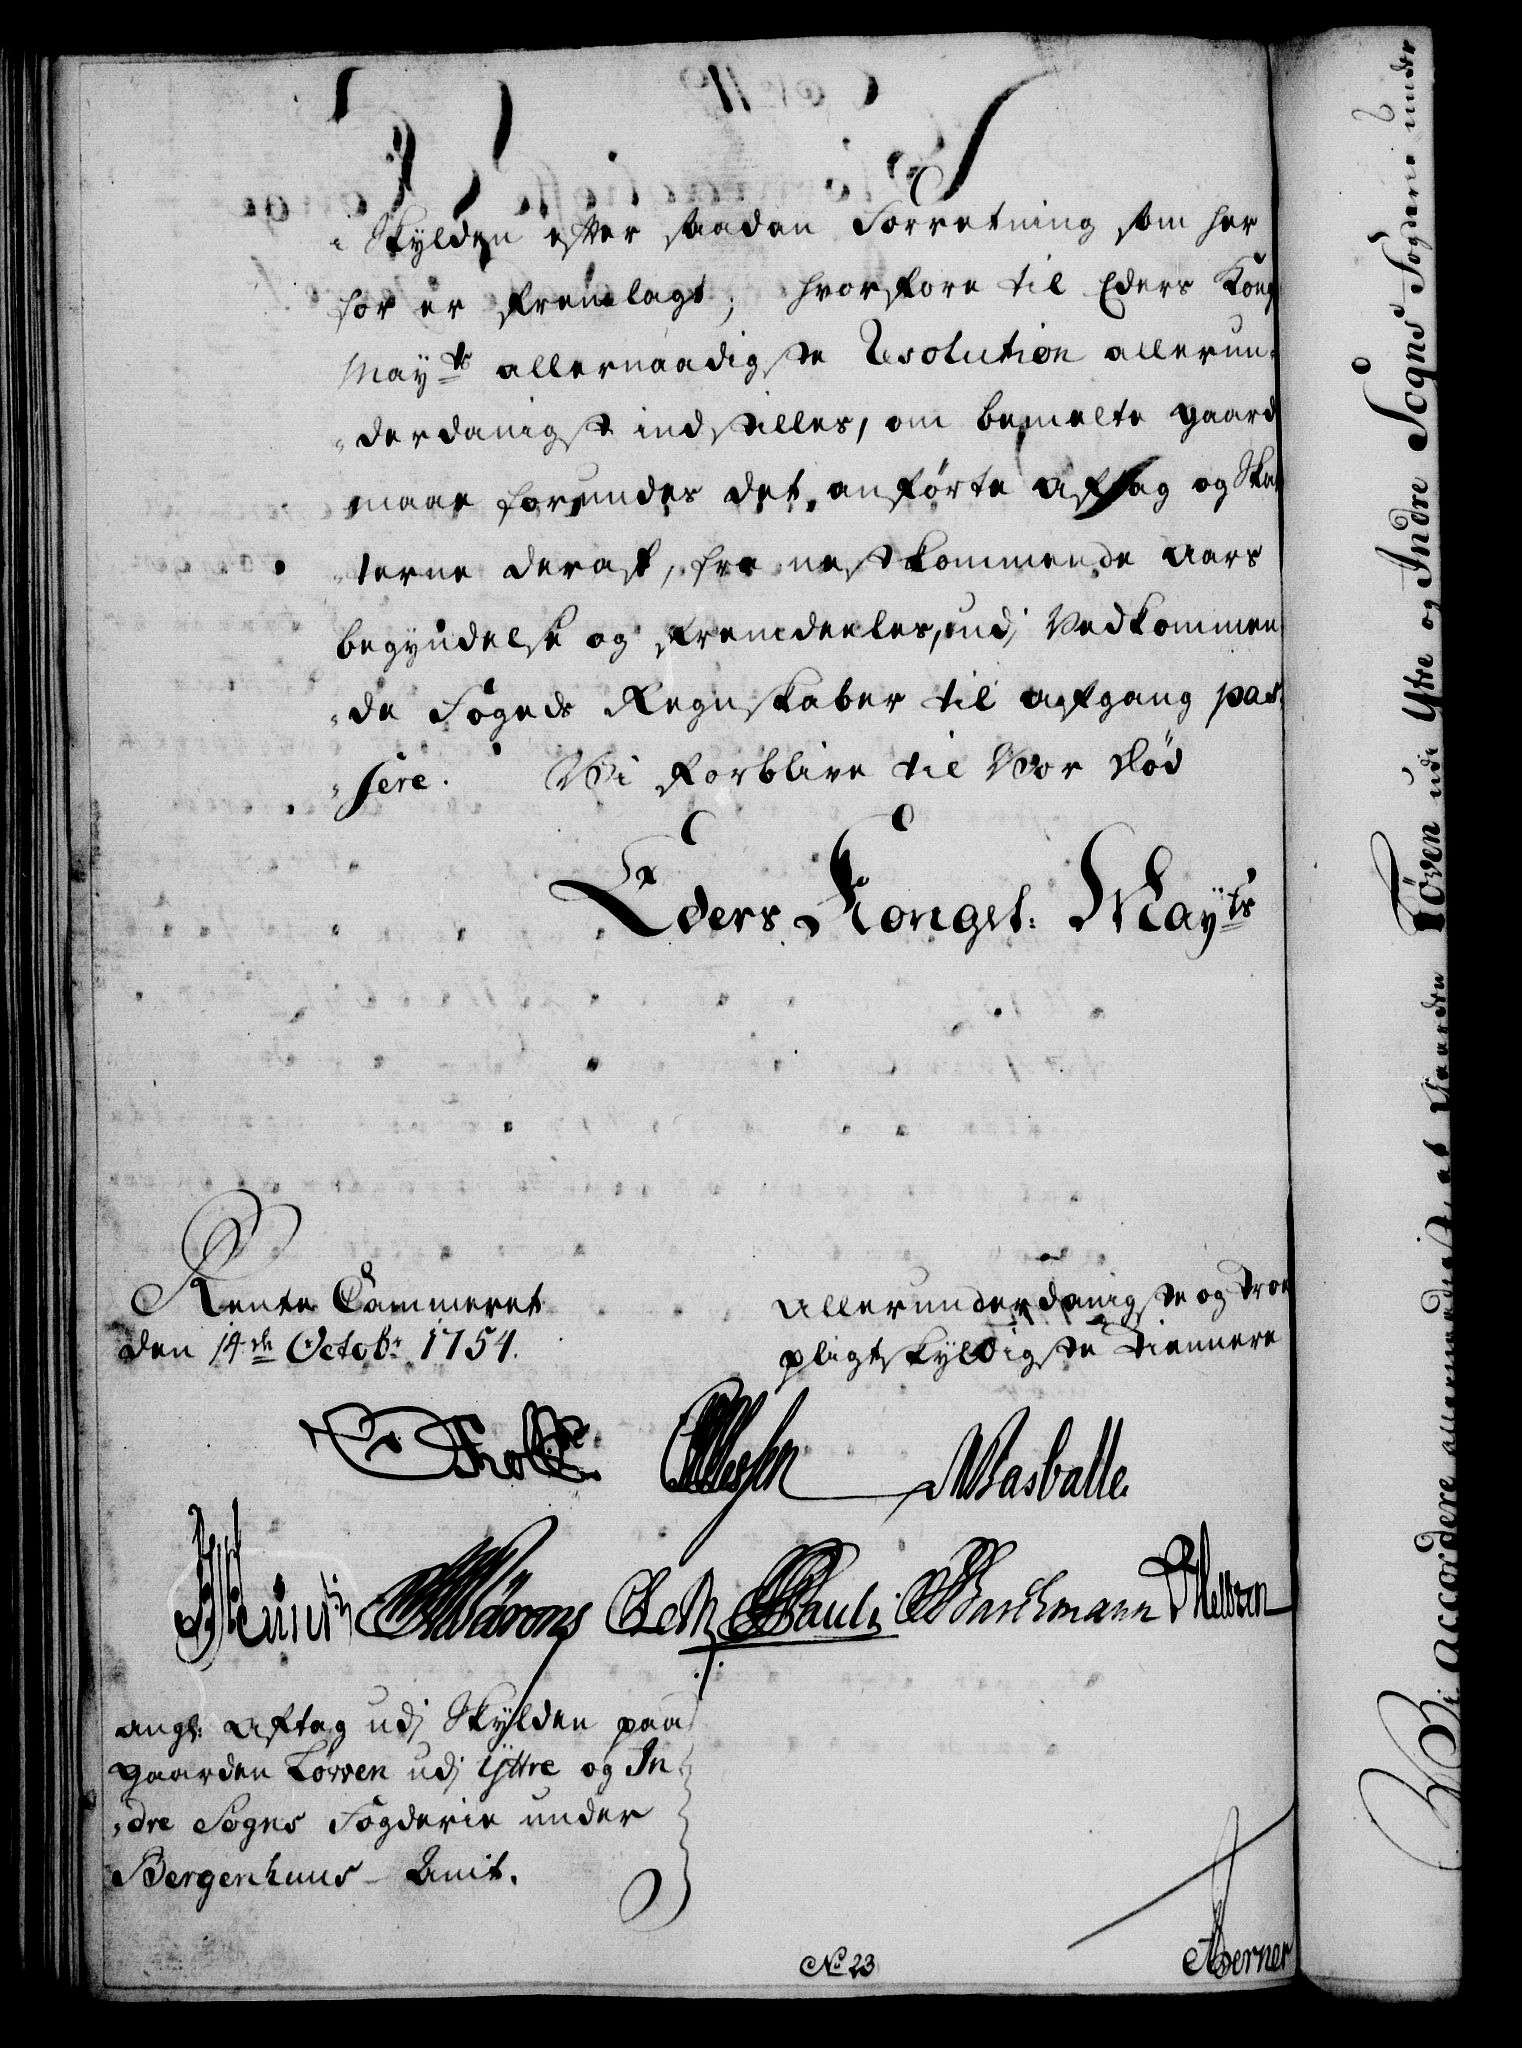 i Skylden efter saadan Forretning som her
for er fremlagt, hvorfore til Eders Kong
Mayts allernaadigste Resolution allerun-
derdanigst indstilles, om bemelte gaard
maae forundes det anførte aftag og Skat
terne deraf, fra nestkommende Aars
begyndelse og fremdeeles, udj Vedkommen-
de Fogeds Regnskaber til afgang pas-
sere. Vi forblive til Vor død
Eders Kongel: Mayts
Rente Cammeret
den 14de Octobr 1754.
Allerunderdanigste og troe
pligtskyldigste Tiennere
Holst Wasballe
Pauli Barchmann
angl: Aftag udj Skylden paa
gaarden Tørven udj Ÿttre og In-
dre Sogns Fogderie under
Bergenhuus Amt.
No 23
Werner
Vi accordere allernaadigst, at Gaarden Tørven udi Ÿtre og Indre Sogns Fogderie under